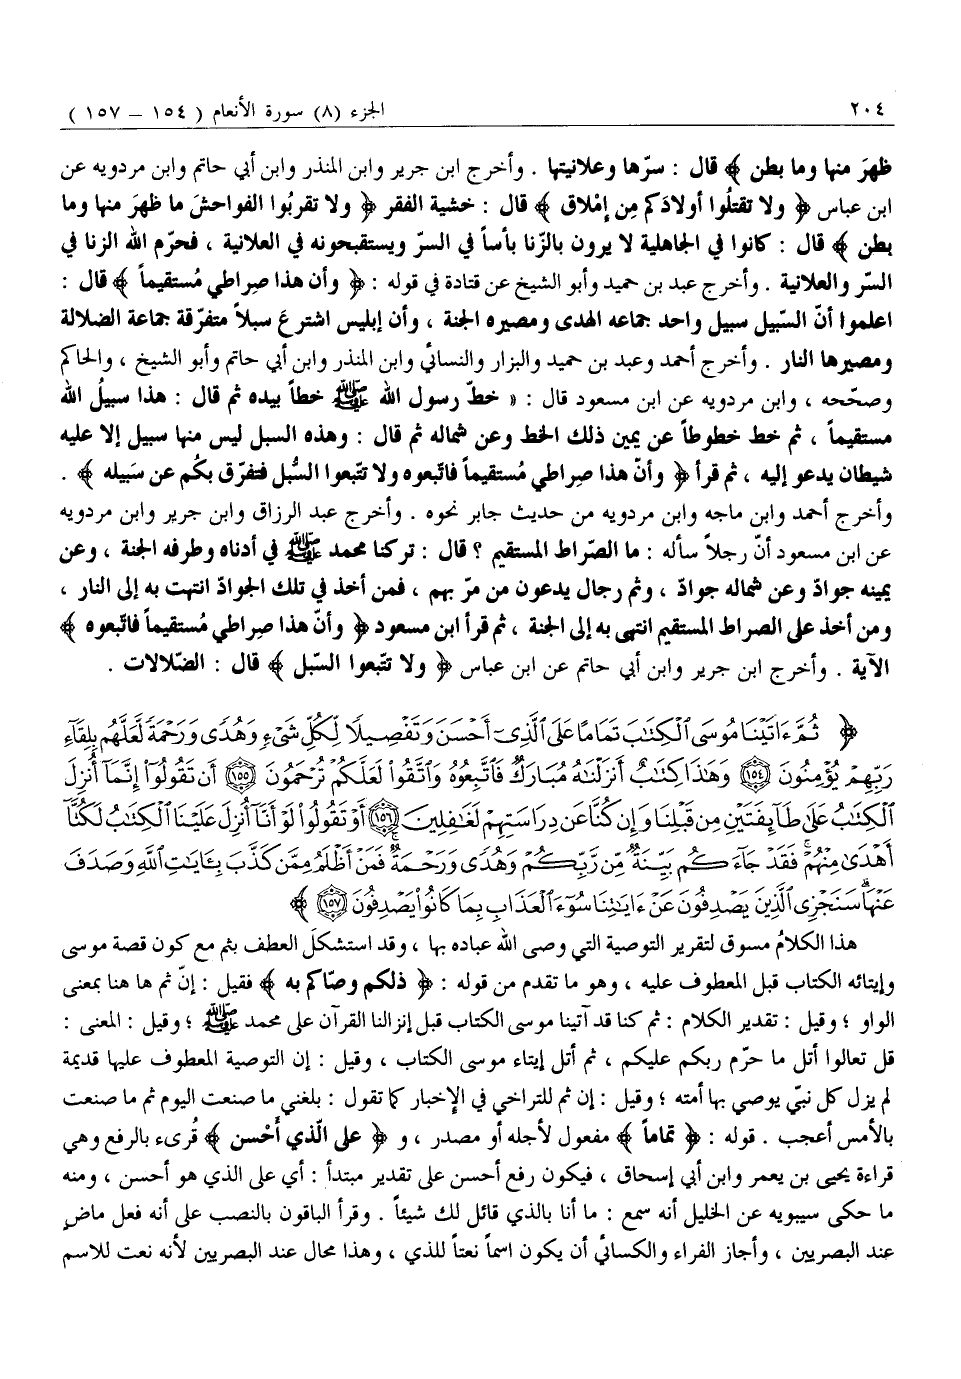 ٢٠٤ الجزء (٨) سورة الأنعام ( ١٥٤ – ١٥٧ )
ظهرَ منها وما بطن ﴾ قال : سرّها وعلانيتها . وأخرج ابن جرير وابن المنذر وابن أبي حاتم وابن مردويه عن
ابن عباس ﴿ ولا تقتلُوا أولادَكم مِن إمْلاق ﴾ قال : خشية الفقر ﴿ ولا تقربُوا الفواحشَ ما ظهرَ منها وما
بطن ﴾ قال : كانوا في الجاهلية لا يرون بالزّنا بأساً في السرّ ويستقبحونه في العلانية ، فحرّم الله الزنا في
السّر والعلانية . وأخرج عبد بن حميد وأبو الشيخ عن قتادة في قوله : ﴿ وأن هذا صِراطي مُستقيماً ﴾ قال :
اعلموا أنّ السّبيل سبيل واحد جماعه الهدى ومصيره الجنة ، وأن إبليس اشترع سبلاً متفرّقة جماعة الضلالة
ومصيرها النار . وأخرج أحمد وعبد بن حميد والبزار والنسائي وابن المنذر وابن أبي حاتم وأبو الشيخ ، والحاكم
وصحّحه ، وابن مردويه عن ابن مسعود قال : « خطّ رسول الله ﷺ خطاً بيده ثم قال : هذا سبيلُ الله
مستقيماً ، ثم خط خطوطاً عن يمين ذلك الخط وعن شماله ثم قال : وهذه السبل ليس منها سبيل إلا عليه
شيطان يدعو إليه ، ثم قرأ ﴿ وأنّ هذا صِراطي مُستقيماً فاتّبعوه ولا تتّبعوا السُّبل فتفرّق بكُم عن سَبيله ﴾ .
وأخرج أحمد وابن ماجه وابن مردويه من حديث جابر نحوه . وأخرج عبد الرزاق وابن جرير وابن مردويه
عن ابن مسعود أنّ رجلاً سأله : ما الصّراط المستقيم ؟ قال : تركنا محمد ﷺ في أدناه وطرفه الجنة ، وعن
يمينه جوادّ وعن شماله جوادّ ، وثم رجال يدعون من مرّ بهم ، فمن أخذ في تلك الجوادّ انتهت به إلى النار ،
ومن أخذ على الصراط المستقيم انتهى به إلى الجنة ، ثم قرأ ابن مسعود ﴿ وأنّ هذا صِراطي مُستقيماً فاتّبعوه ﴾
الآية . وأخرج ابن جرير وابن أبي حاتم عن ابن عباس ﴿ ولا تتّبعوا السّبل ﴾ قال : الضّلالات .
﴿ ثُمَّ ءَاتَيْنَا مُوسَى ٱلْكِتَٰبَ تَمَامًا عَلَى ٱلَّذِىٓ أَحْسَنَ وَتَفْصِيلًا لِّكُلِّ شَىْءٍ وَهُدًى وَرَحْمَةً لَّعَلَّهُم بِلِقَآءِ
رَبِّهِمْ يُؤْمِنُونَ ١٥٤ وَهَٰذَا كِتَٰبٌ أَنزَلْنَٰهُ مُبَارَكٌ فَٱتَّبِعُوهُ وَٱتَّقُوا۟ لَعَلَّكُمْ تُرْحَمُونَ ١٥٥ أَن تَقُولُوٓا۟ إِنَّمَآ أُنزِلَ
ٱلْكِتَٰبُ عَلَىٰ طَآئِفَتَيْنِ مِن قَبْلِنَا وَإِن كُنَّا عَن دِرَاسَتِهِمْ لَغَٰفِلِينَ ١٥٦ أَوْ تَقُولُوا۟ لَوْ أَنَّآ أُنزِلَ عَلَيْنَا ٱلْكِتَٰبُ لَكُنَّآ
أَهْدَىٰ مِنْهُمْ ۚ فَقَدْ جَآءَكُم بَيِّنَةٌ مِّن رَّبِّكُمْ وَهُدًى وَرَحْمَةٌ ۚ فَمَنْ أَظْلَمُ مِمَّن كَذَّبَ بِـَٔايَٰتِ ٱللَّهِ وَصَدَفَ
عَنْهَا ۗ سَنَجْزِى ٱلَّذِينَ يَصْدِفُونَ عَنْ ءَايَٰتِنَا سُوٓءَ ٱلْعَذَابِ بِمَا كَانُوا۟ يَصْدِفُونَ ١٥٧ ﴾
هذا الكلامُ مسوق لتقرير التوصية التي وصى الله عباده بها ، وقد استشكلَ العطف بثم مع كون قصة موسى
وإيتائه الكتاب قبل المعطوف عليه ، وهو ما تقدم من قوله : ﴿ ذلكم وصّاكم به ﴾ فقيل : إنّ ثم ها هنا بمعنى
الواو ؛ وقيل : تقدير الكلام : ثم كنا قد آتينا موسى الكتاب قبل إنزالنا القرآن على محمد ﷺ ؛ وقيل : المعنى :
قل تعالوا أتل ما حرّم ربكم عليكم ، ثم أتل إيتاء موسى الكتاب ، وقيل : إن التوصية المعطوف عليها قديمة
لم يزل كل نبّي يوصي بها أمته ؛ وقيل : إن ثم للتراخي في الإخبار كما تقول : بلغني ما صنعت اليوم ثم ما صنعت
بالأمس أعجب . قوله : ﴿ تماماً ﴾ مفعول لأجله أو مصدر ، و ﴿ على الّذي أَحْسن ﴾ قُرىء بالرفع وهي
قراءة يحيى بن يعمر وابن أبي إسحاق ، فيكون رفع أحسن على تقدير مبتدأ : أي على الذي هو أحسن ، ومنه
ما حكى سيبويه عن الخليل أنه سمع : ما أنا بالذي قائل لك شيئاً . وقرأ الباقون بالنصب على أنه فعل ماضٍ
عند البصريين ، وأجاز الفراء والكسائي أن يكون اسماً نعتاً للذي ، وهذا محال عند البصريين لأنه نعت للاسم